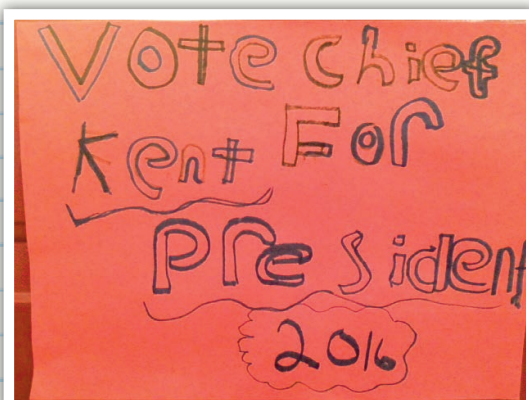 Vote chief
Kent For
President
2016